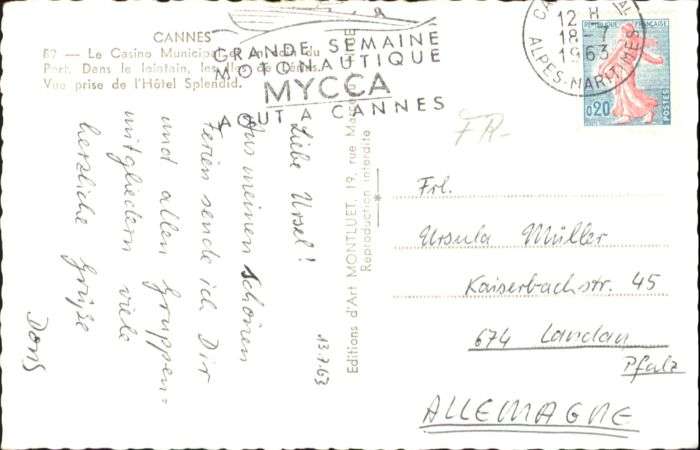 CANNES
57 — Le Casino Municipal et un coin du
Port. Dans le lointain, les Iles de Lérins.
Vue prise de l'Hôtel Splendid.
GRANDE SEMAINE
MOTONAUTIQUE
MYCCA
AOUT A CANNES
12 H
18-7
1963
ALPES-MARITIMES
REPUBLIQUE FRANÇAISE
0,20
POSTES
FR-
13.7.63
Liebe Ursel!
Aus meinen schönen
Ferien sende ich Dir
und allen Gruppen=
mitgliedern viele
herzliche Grüße
Doris
Editions d'Art MONTLUET, 19, rue
Reproduction interdite
Frl.
Ursula Müller
Kaiserbachstr. 45
674 Landau
Pfalz
ALLEMAGNE